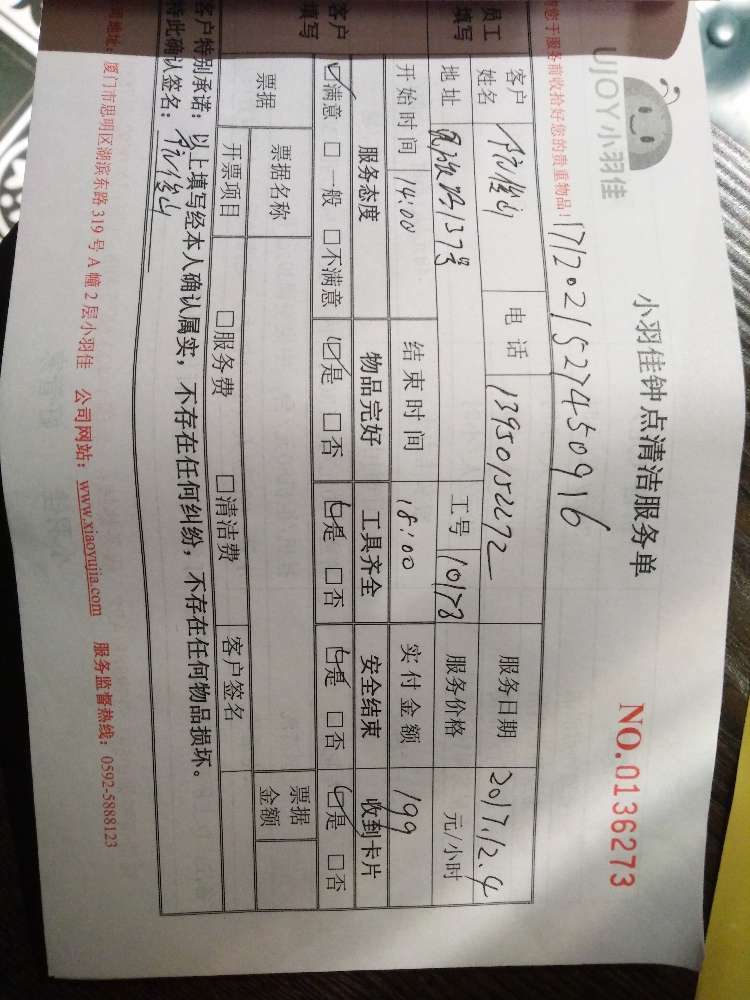 UJOY小羽佳
小羽佳钟点清洁服务单
NO.0136273
您于服务前收拾好您的贵重物品!
1712021527450916
员工填写
客户姓名
电话 13950152272
服务日期 2017.12.4
地址 137号
工号 10178
服务价格 元/小时
开始时间 14:00
结束时间 18:00
实付金额 199
客户填写
服务态度 物品完好 工具齐全 安全结束 收到卡片
☑满意 □一般 □不满意 ☑是 □否 ☑是 □否 ☑是 □否 ☑是 □否
票据 票据名称 票据金额
开票项目 □服务费 □清洁费 客户签名
客户特别承诺:以上填写经本人确认属实,不存在任何纠纷,不存在任何物品损坏。
特此确认签名:
地址:厦门市思明区湖滨东路 319 号 A 幢 2 层小羽佳 公司网站:www.xiaoyujia.com 服务监督热线:0592-5888123